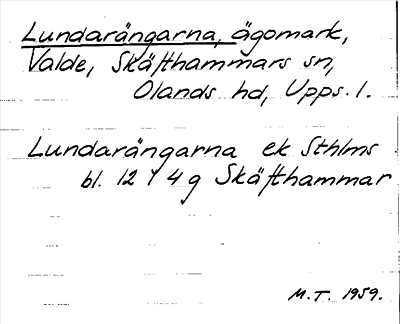 Lundarängarna, ägomark,
Valde, Skäfthammars sn,
Olands hd, Upps. l.
Lundarängarna ek Sthlms
bl. 12 Y 4 g Skäfthammar
M.T. 1959.